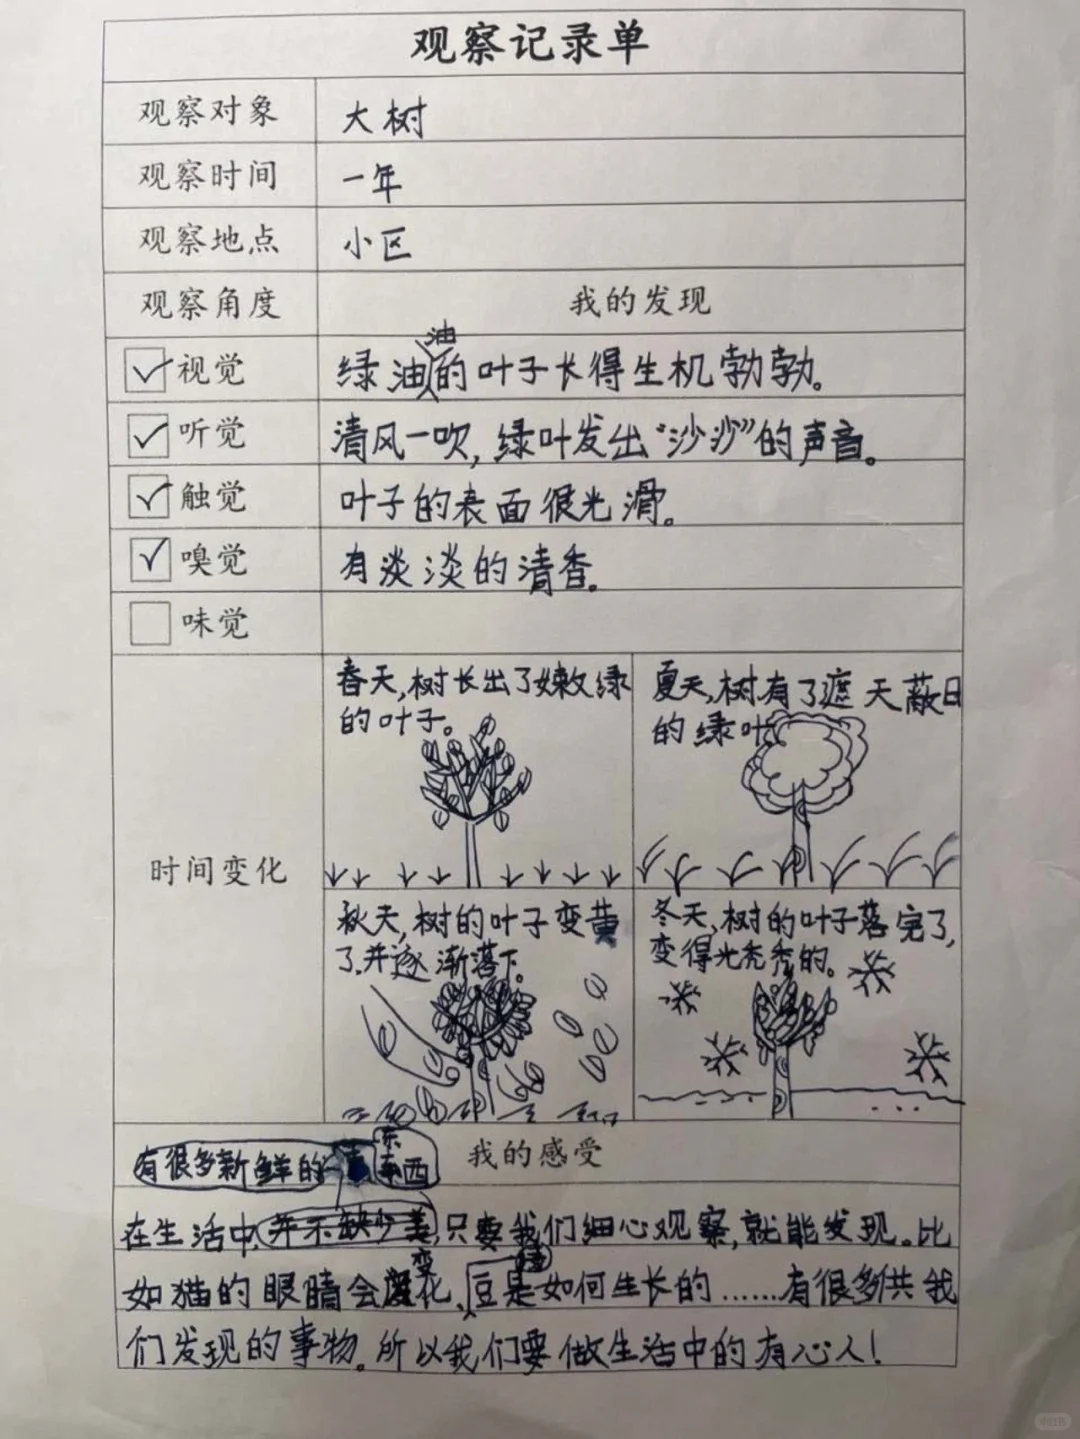 观察记录单
观察对象 大树
观察时间 一年
观察地点 小区
观察角度 我的发现
视觉 绿油油的叶子长得生机勃勃。
听觉 清风一吹,绿叶发出“沙沙”的声音。
触觉 叶子的表面很光滑。
嗅觉 有淡淡的清香。
味觉
时间变化
春天,树长出了嫩绿
的叶子。
夏天,树有了遮天蔽日
的绿叶
秋天,树的叶子变黄
了.并逐渐落下。
冬天,树的叶子落完了,
变得光秃秃的。
我的感受
有很多新鲜的东西
在生活中,并不缺少美,只要我们细心观察,就能发现。比
如猫的眼睛会变化、豆是如何生长的……有很多供我
们发现的事物。所以我们要做生活中的有心人!